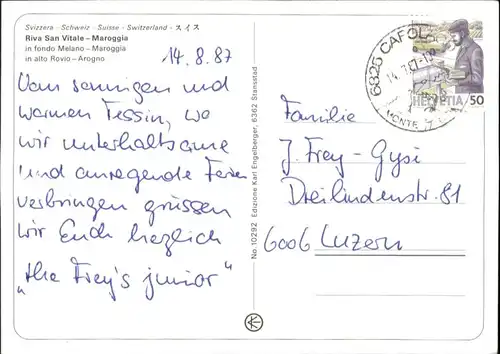 Svizzera - Schweiz - Suisse - Switzerland - スイス
Riva San Vitale – Maroggia
in fondo Melano – Maroggia
in alto Rovio – Arogno
14.8.87
Vom sonnigen und
warmen Tessin, wo
wir unterhaltsame
und anregende Ferien
verbringen grüssen
wir Euch herzlich
„the Frey's junior"
No. 10292 Edizione Karl Engelberger, 6362 Stansstad
6825 CAPOLA
MONTE
HELVETIA 50
Familie
J. Frey - Gysi
Dreilindenstr. 81
6006 Luzern